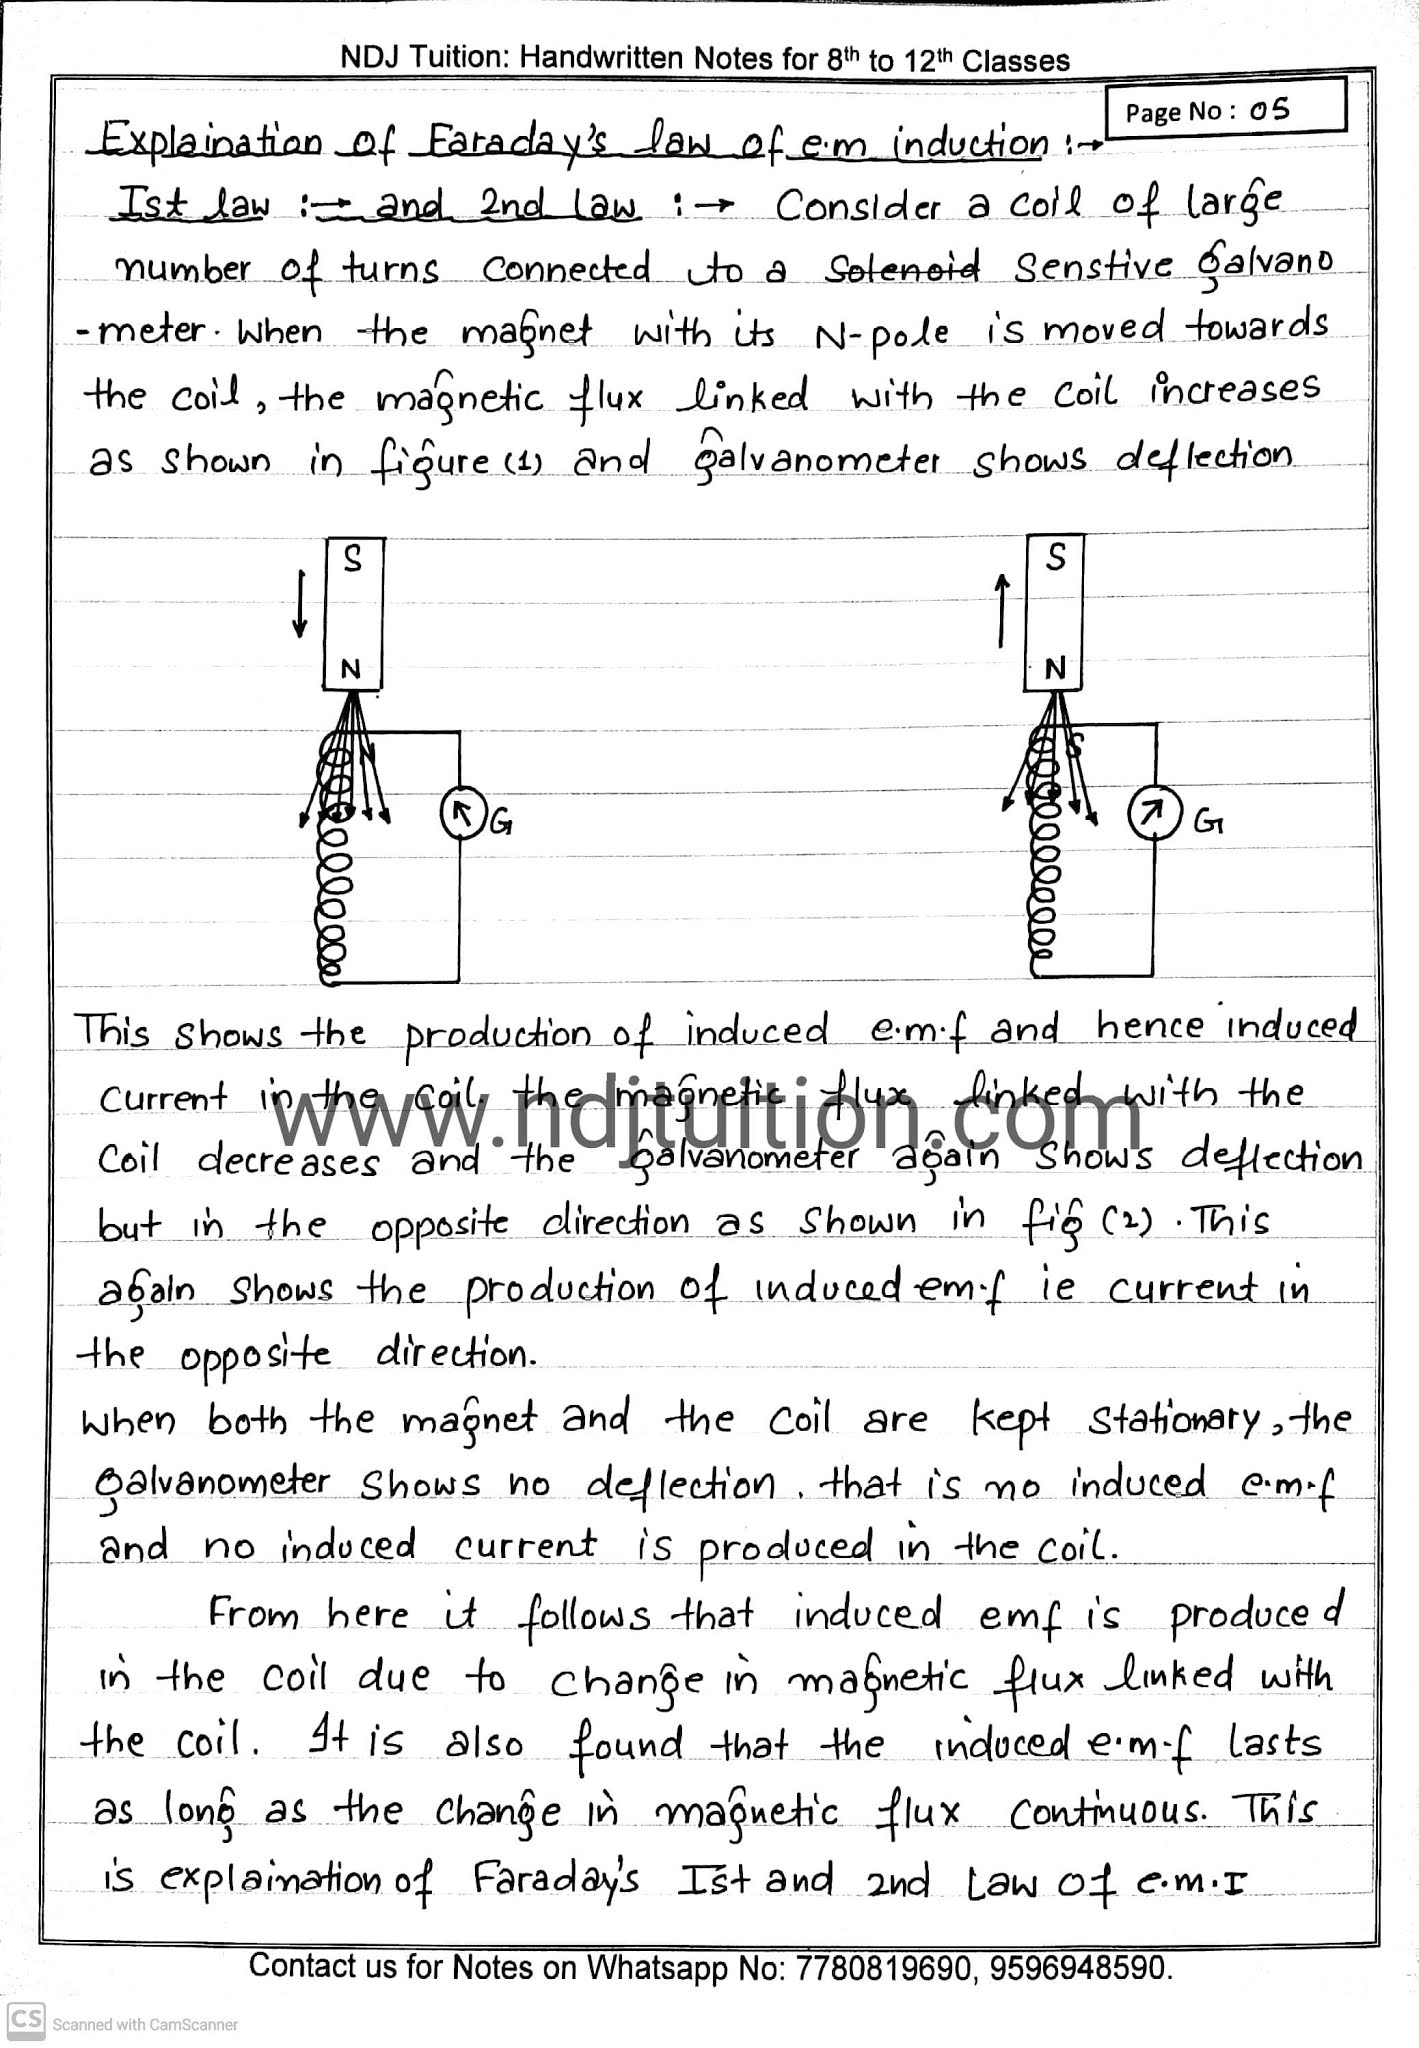 NDJ Tuition: Handwritten Notes for 8th to 12th Classes
Page No : 05
Explaination of Faraday's law of e.m induction :→
Ist law :→ and 2nd law :→ Consider a coil of large
number of turns connected to a Solenoid Senstive Galvano
-meter. When the magnet with its N-pole is moved towards
the coil, the magnetic flux linked with the coil increases
as shown in figure (1) and galvanometer shows deflection
S S
↓ ↑
N N
N S
G G
This shows the production of induced e.m.f and hence induced
current in the coil. the magnetic flux linked with the
www.ndjtuition.com
coil decreases and the galvanometer again shows deflection
but in the opposite direction as shown in fig (2). This
again shows the production of induced em.f ie current in
the opposite direction.
when both the magnet and the coil are kept stationary, the
galvanometer shows no deflection. that is no induced e.m.f
and no induced current is produced in the coil.
From here it follows that induced emf is produced
in the coil due to change in magnetic flux linked with
the coil. It is also found that the induced e.m.f lasts
as long as the change in magnetic flux continuous. This
is explaination of Faraday's Ist and 2nd Law of e.m.I
Contact us for Notes on Whatsapp No: 7780819690, 9596948590.
CS Scanned with CamScanner